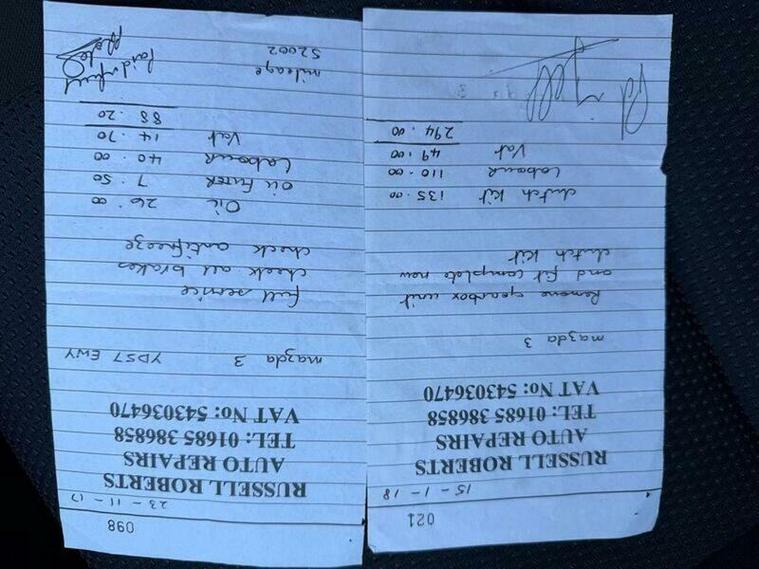 021
15 - 1 - 18
RUSSELL ROBERTS
AUTO REPAIRS
TEL: 01685 386858
VAT No: 543036470
mazda 3
Remove gearbox unit
and fit complete new
clutch kit
clutch kit 135.00
Labour 110.00
Vat 49.00
294.00
098
23 - 11 - 17
RUSSELL ROBERTS
AUTO REPAIRS
TEL: 01685 386858
VAT No: 543036470
mazda 3 YD57 EWY
full service
check all brakes
check antifreeze
Oil 26.00
Oil Filter 7.50
Labour 40.00
Vat 14.70
88.20
mileage Paid in full
52002